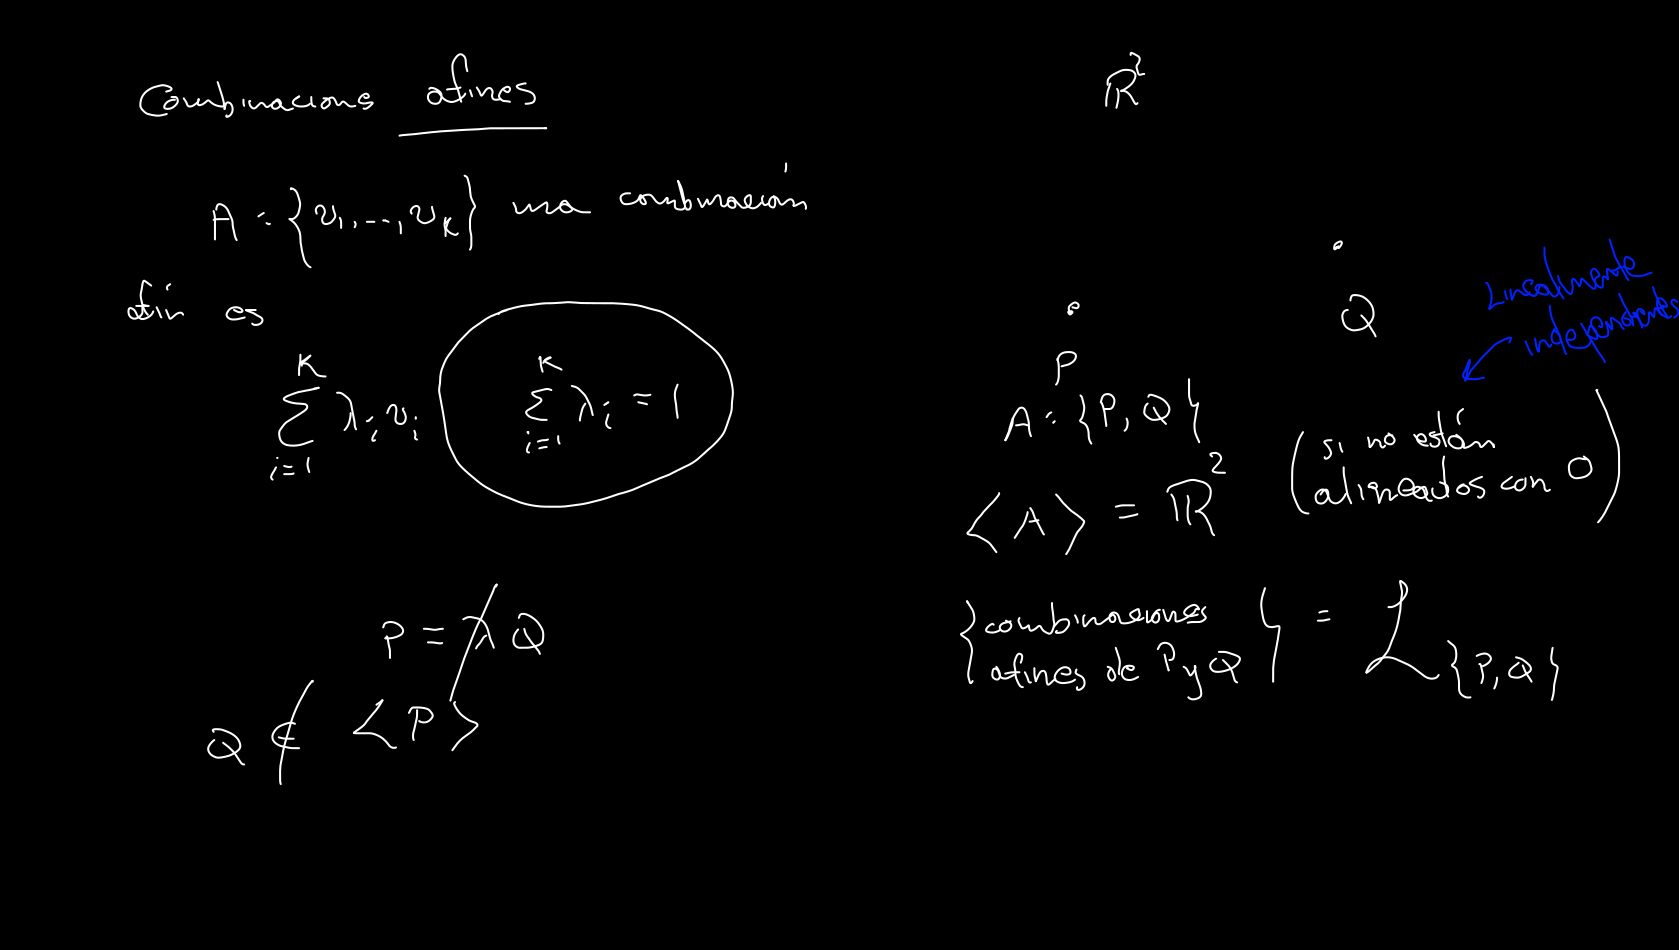 Combinacions afines
A = {v₁, ..., vₖ} una combinación
afín es
∑ᵢ₌₁ᴷ λᵢvᵢ ∑ᵢ₌₁ᴷ λᵢ = 1
P = λ Q
Q ∉ ⟨P⟩
ℝ²
P
Q
A = {P, Q}
⟨A⟩ = ℝ²
(si no están
alineados con 0)
Linealmente
independientes
{combinaciones
afines de P y Q} = ℒ_{P, Q}